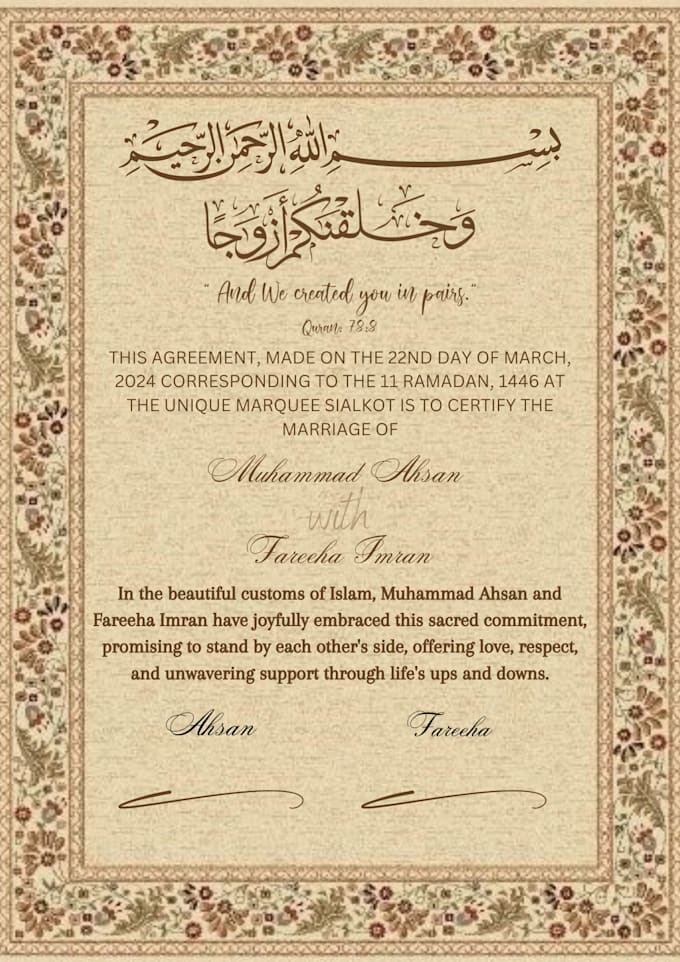 بِسْمِ اللهِ الرَّحْمَنِ الرَّحِيمِ
وَخَلَقْنَكُمْ أَزْوَجًا
" And We created you in pairs."
Quran: 78:8
THIS AGREEMENT, MADE ON THE 22ND DAY OF MARCH,
2024 CORRESPONDING TO THE 11 RAMADAN, 1446 AT
THE UNIQUE MARQUEE SIALKOT IS TO CERTIFY THE
MARRIAGE OF
Muhammad Ahsan
with
Fareeha Imran
In the beautiful customs of Islam, Muhammad Ahsan and
Fareeha Imran have joyfully embraced this sacred commitment,
promising to stand by each other's side, offering love, respect,
and unwavering support through life's ups and downs.
Ahsan Fareeha